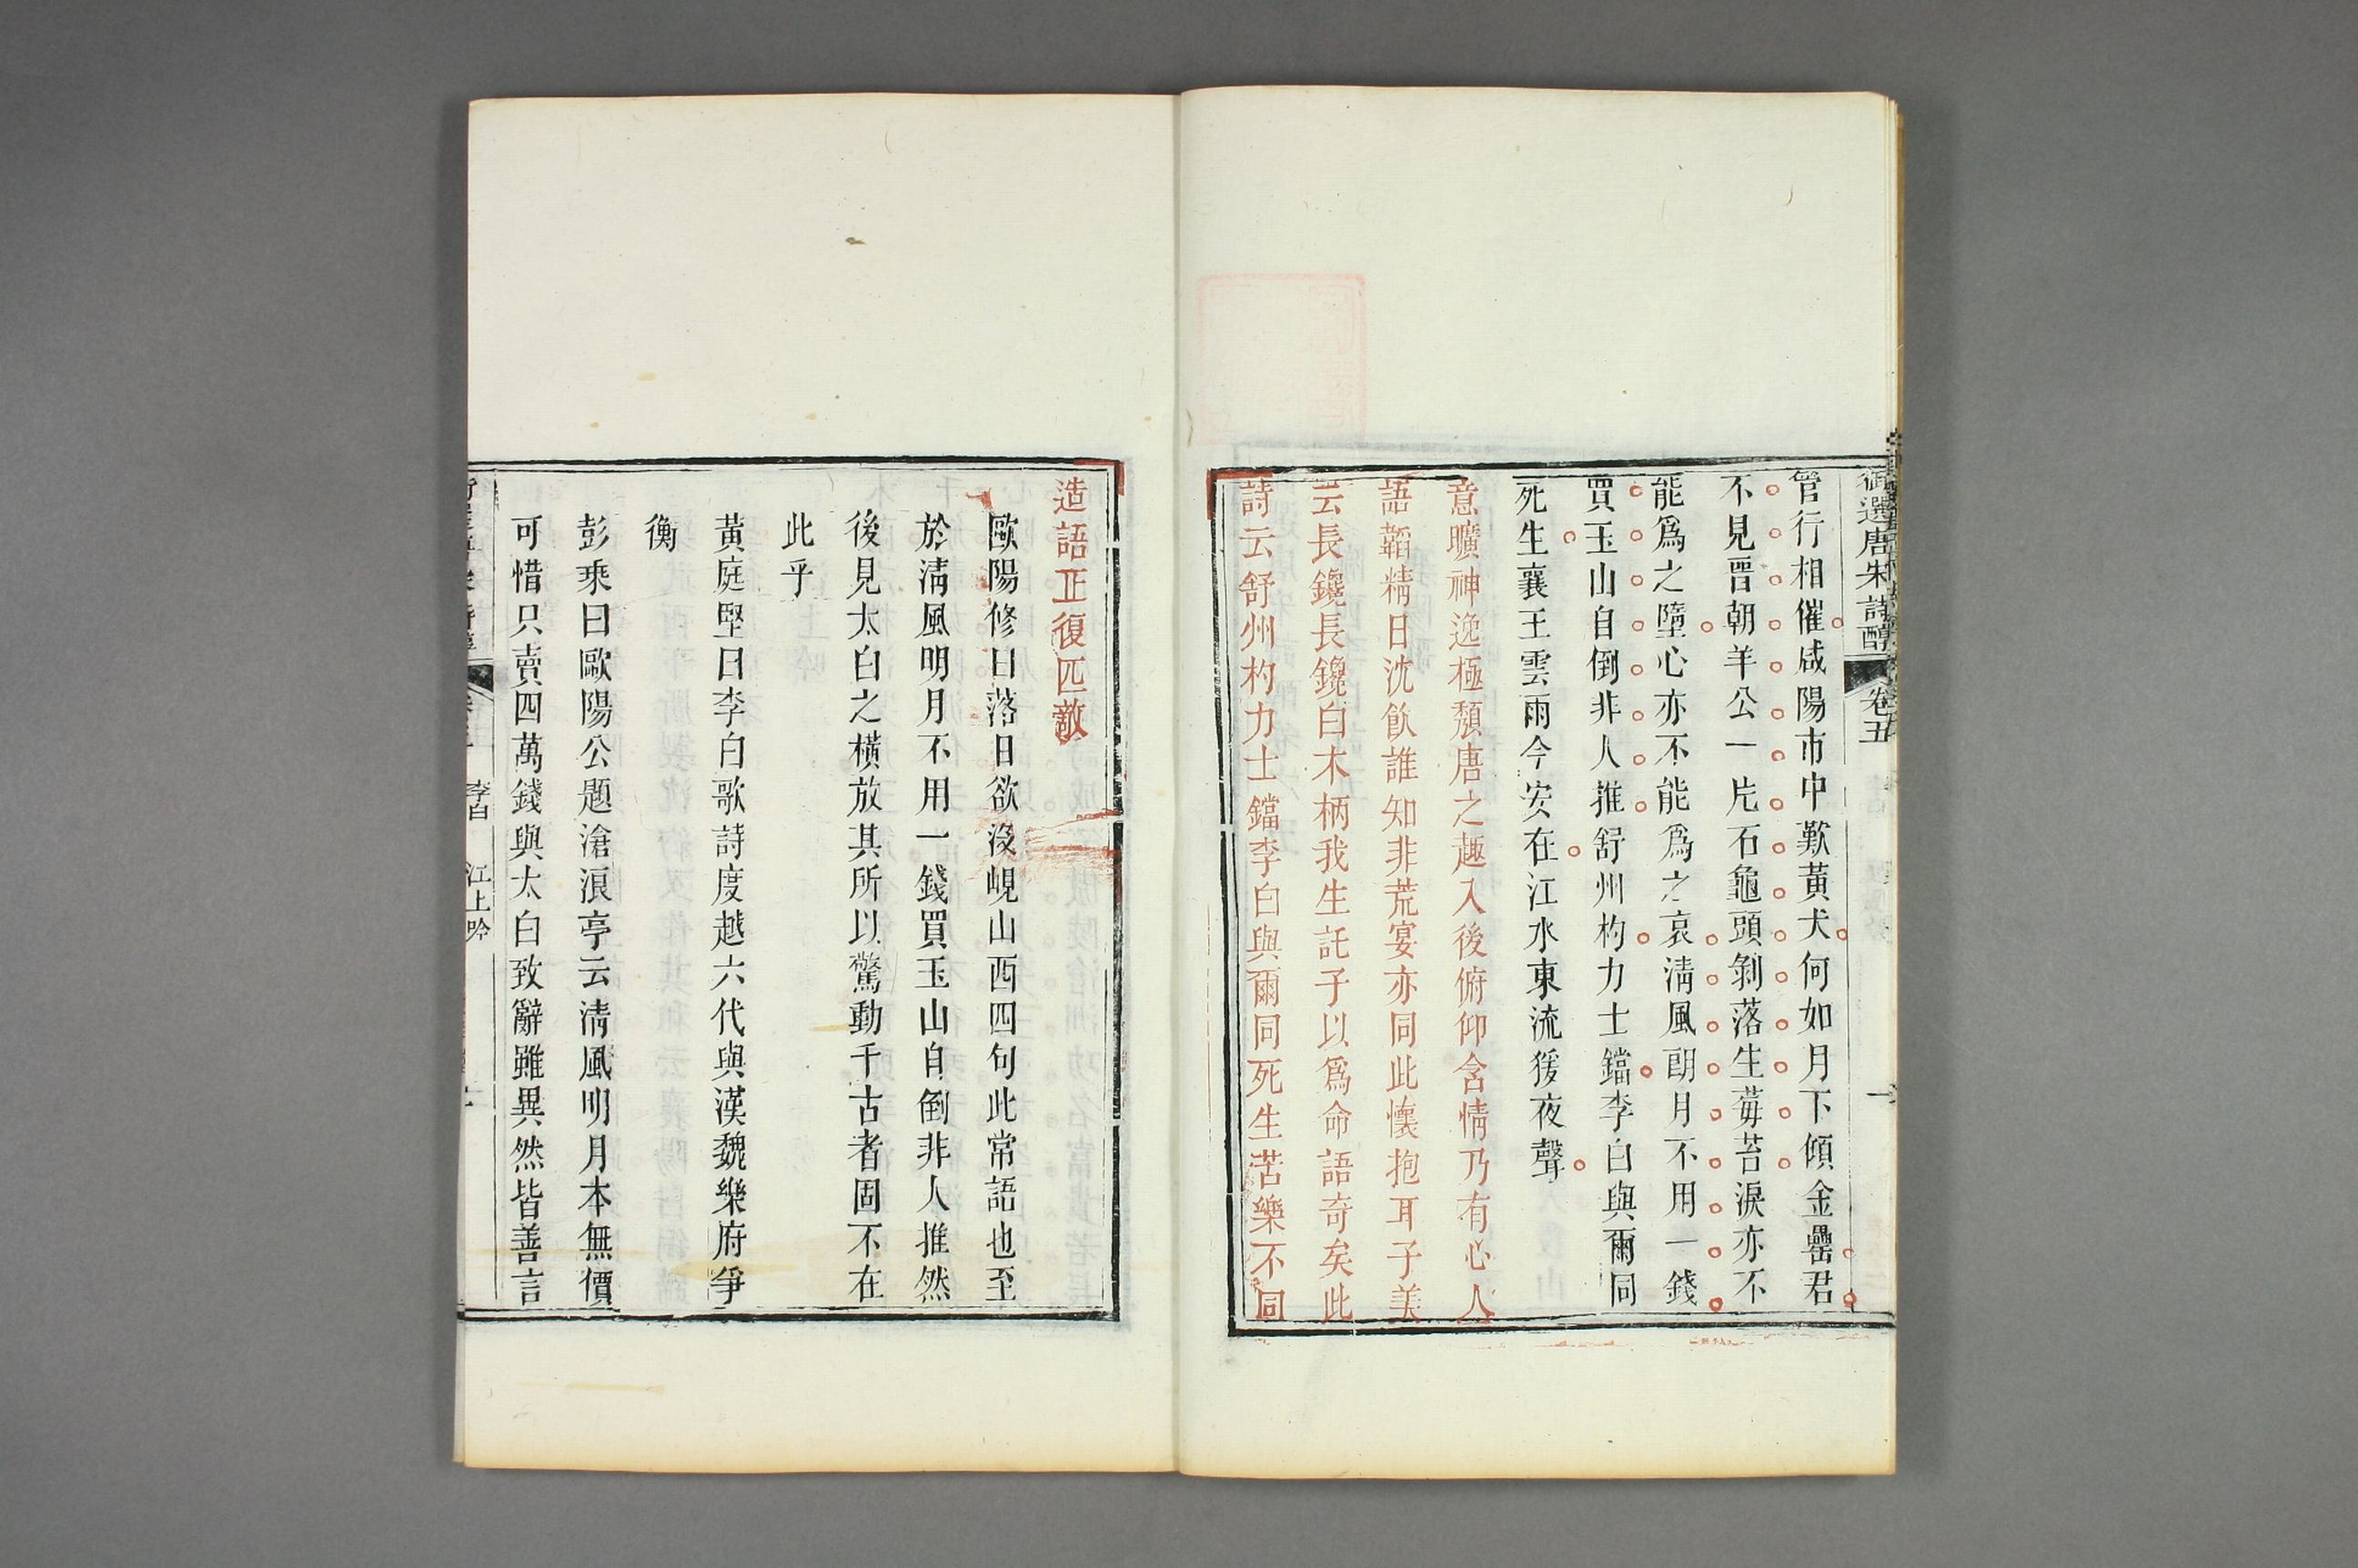 御選唐宋詩醇 卷五
管行相催咸陽市中歎黃犬何如月下傾金罍君
不見晉朝羊公一片石龜頭剝落生莓苔淚亦不
能爲之墮心亦不能爲之哀清風朗月不用一錢
買玉山自倒非人推舒州杓力士鐺李白與爾同
死生襄王雲雨今安在江水東流猨夜聲
意曠神逸極頹唐之趣入後俯仰含情乃有心人
語韜精日沈飲誰知非荒宴亦同此懷抱耳子美
云長鑱長鑱白木柄我生託子以爲命語奇矣此
詩云舒州杓力士鐺李白與爾同死生苦樂不同
造語正復匹敵
歐陽修曰落日欲沒峴山西四句此常語也至
於清風明月不用一錢買玉山自倒非人推然
後見太白之橫放其所以驚動千古者固不在
此乎
黃庭堅曰李白歌詩度越六代與漢魏樂府爭
衡
彭乘曰歐陽公題滄浪亭云清風明月本無價
可惜只賣四萬錢與太白致辭雖異然皆善言
李白 江上吟